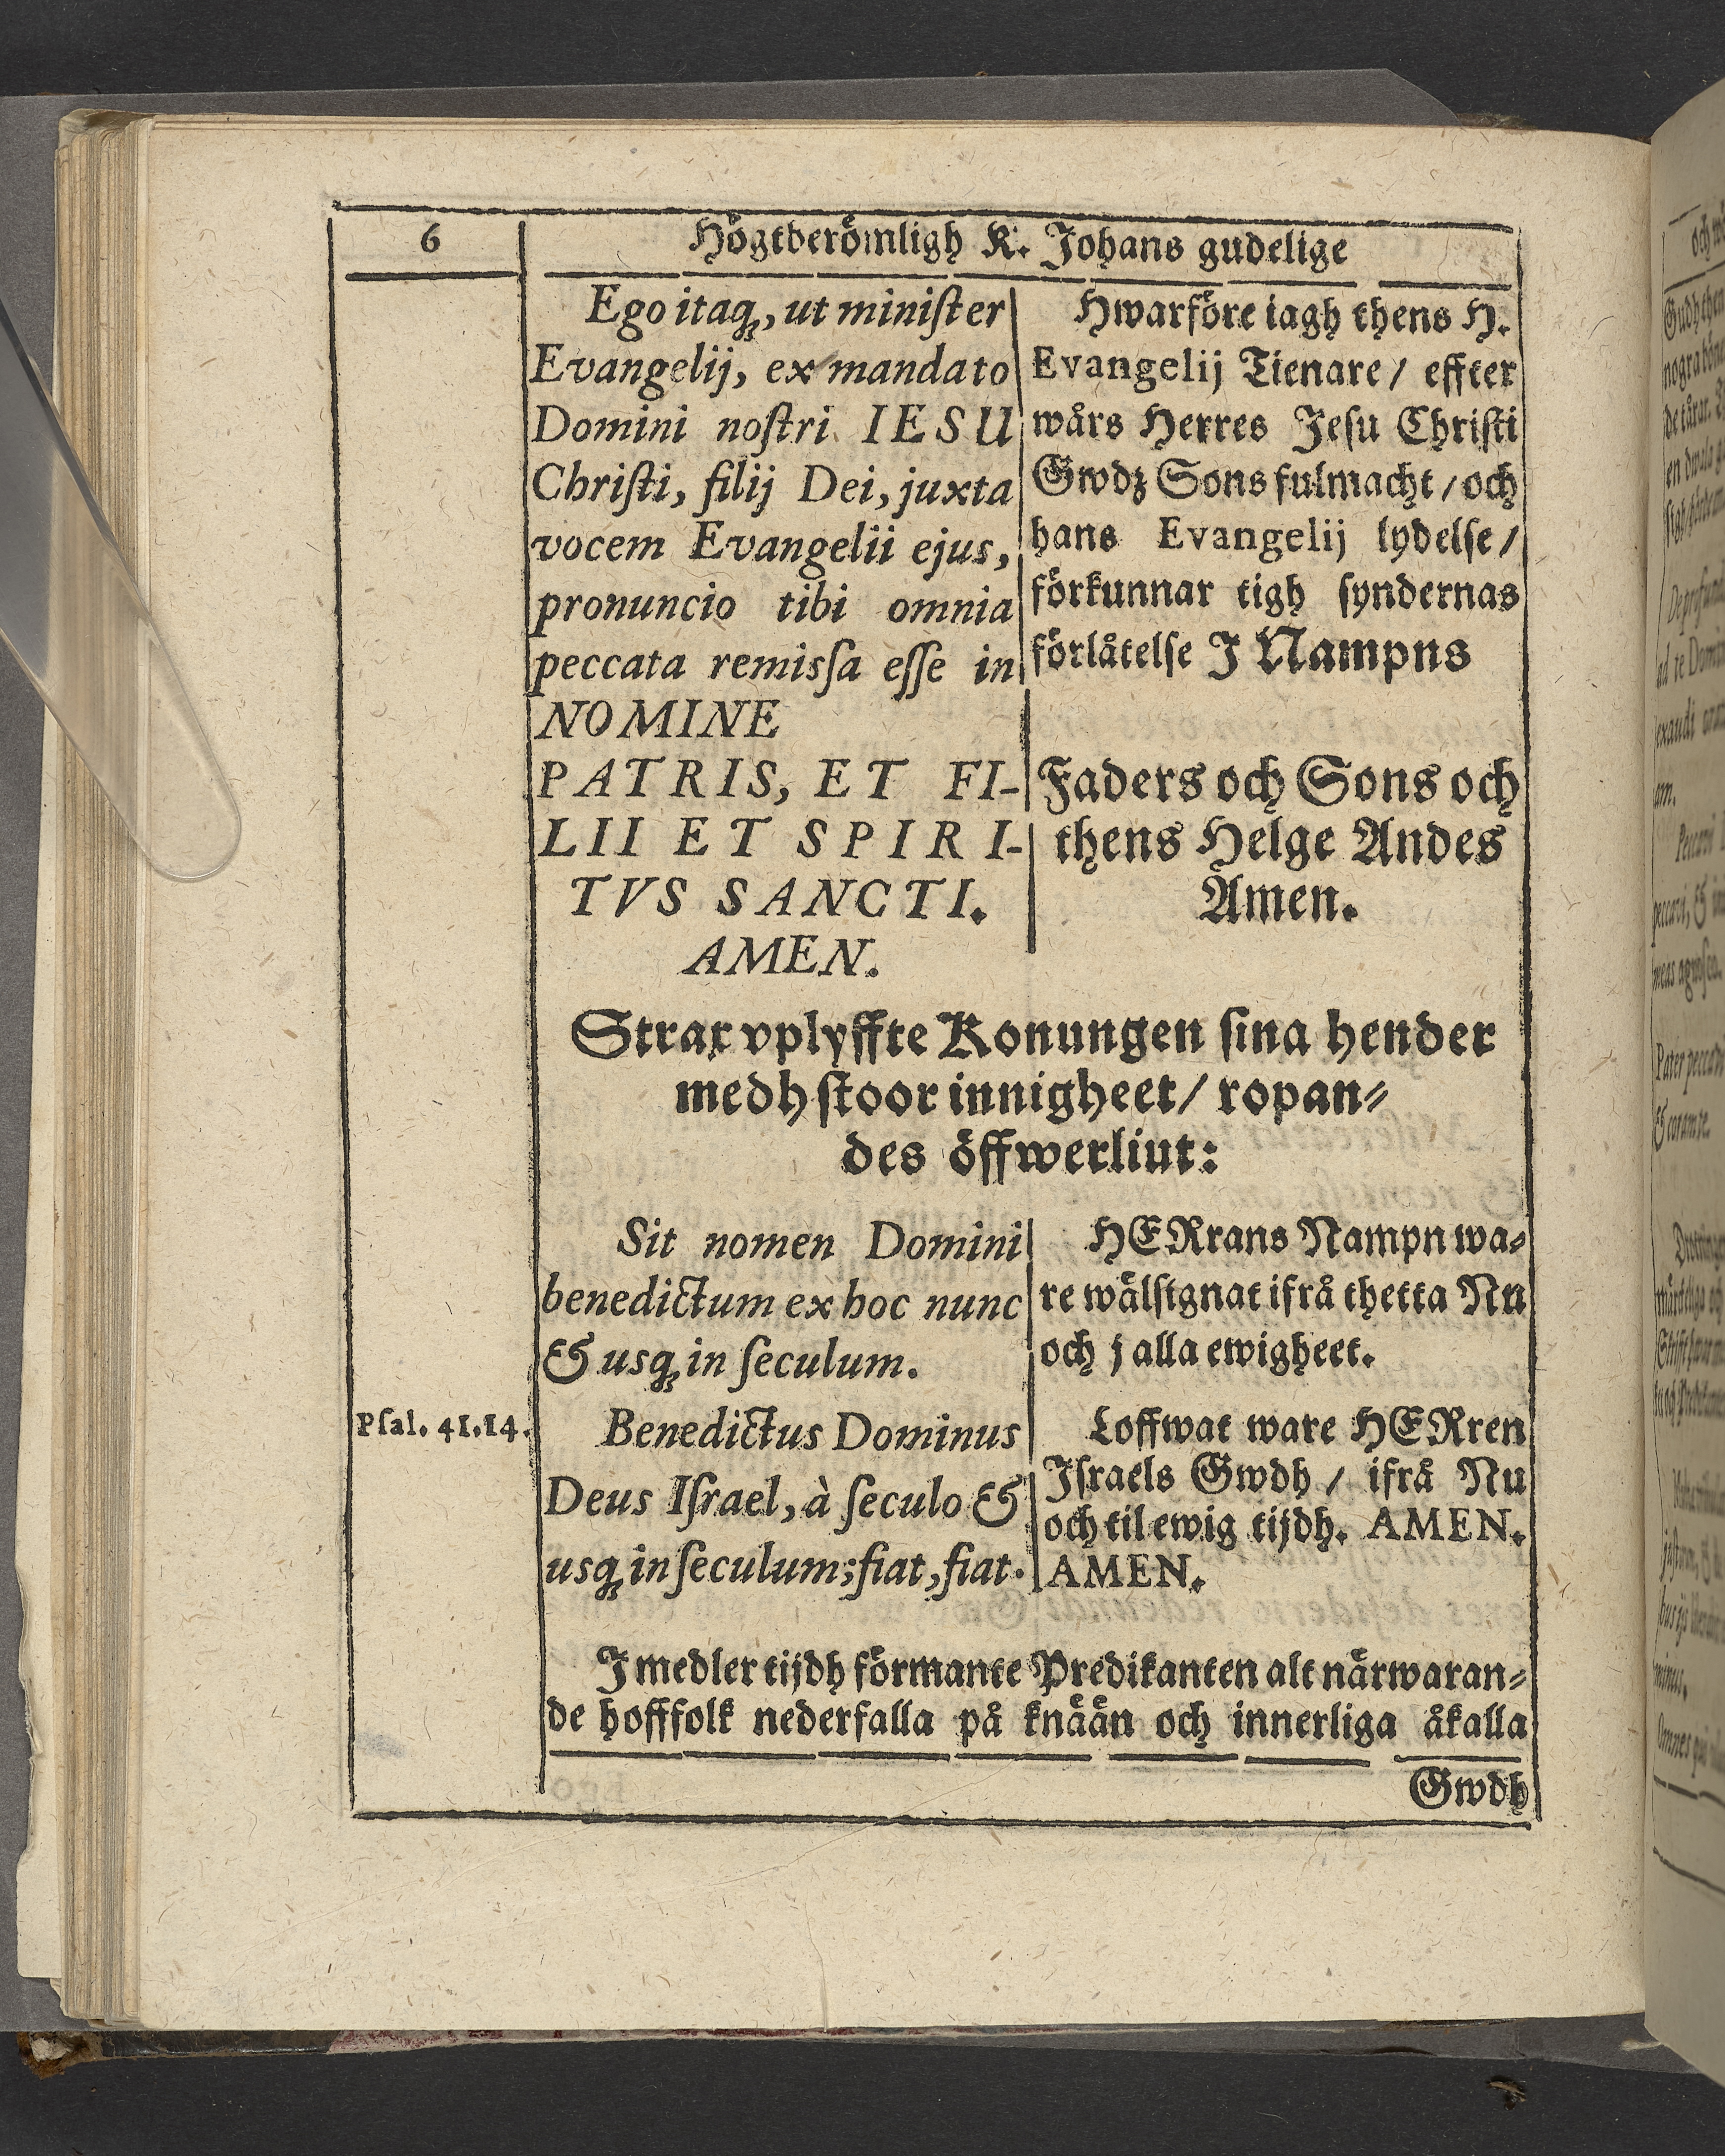 6
Högtberömligh K. Johans gudelige
Ego itaq́ꝫ, ut miniſter
Evangelij, ex mandato
Domini noſtri IESU
Chriſti, filij Dei, juxta
vocem Evangelii ejus,
pronuncio tibi omnia
peccata remisſa eſſe in
NOMINE
PATRIS, ET FI-
LII ET SPIRI-
TVS SANCTI.
AMEN.
Hwarföre iagh thens H.
Evangelij Tienare / effter
wårs Herres Jeſu Chriſti
Gwdz Sons fulmacht / och
hans Evangelij lydelſe /
förkunnar tigh ſyndernas
förlåtelſe J Nampns
Faders och Sons och
thens Helge Andes
Amen.
Strax vplyffte Konungen ſina hender
medh ſtoor innigheet / ropan⸗
des öffwerliut:
Sit nomen Domini
benedictum ex hoc nunc
& usq́ꝫ in ſeculum.
HERrans Nampn wa⸗
re wälſignat ifrå thetta Nu
och j alla ewigheet.
Pſal. 41.14.
Benedictus Dominus
Deus Iſrael, à ſeculo &
usq́ꝫ in ſeculum; fiat, fiat.
Loffwat ware HERren
Jſraels Gwdh / ifrå Nu
och til ewig tijdh. AMEN.
AMEN.
J medler tijdh förmante Predikanten alt närwaran⸗
de hofffolk nederfalla på knään och innerliga åkalla
Gwdh